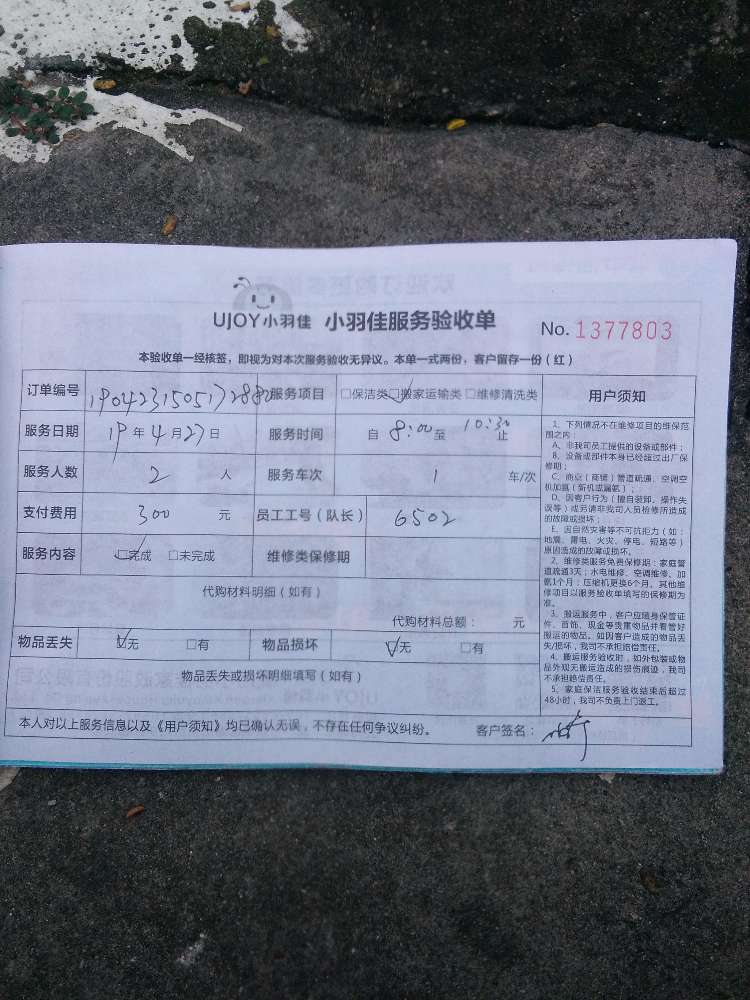 UJOY小羽佳 小羽佳服务验收单 No. 1377803
本验收单一经核签，即视为对本次服务验收无异议。本单一式两份，客户留存一份（红）
订单编号 190423150517288 服务项目 □保洁类 ☑搬家运输类 □维修清洗类
服务日期 19 年 4 月 27 日 服务时间 自 8:00 至 10:30 止
服务人数 2 人 服务车次 1 车/次
支付费用 300 元 员工工号（队长） 6502
服务内容 ☑完成 □未完成 维修类保修期
代购材料明细（如有）
代购材料总额： 元
物品丢失 ☑无 □有 物品损坏 ☑无 □有
物品丢失或损坏明细填写（如有）
本人对以上服务信息以及《用户须知》均已确认无误，不存在任何争议纠纷。 客户签名：
用户须知
1、下列情况不在维修项目的维保范
围之内：
A、非我司员工提供的设备或部件；
B、设备或部件本身已经超过出厂保
修期；
C、商业（商铺）管道疏通、空调空
机加氨（新机或漏氨）；
D、因客户行为（擅自装卸、操作失
误等）或另请非我司人员检修所造成
的故障或损坏；
E、因自然灾害等不可抗拒力（如：
地震、雷电、火灾、停电、短路等）
原因造成的故障或损坏。
2、维修类服务免费保修期：家庭管
道疏通3天；水电维修、空调维修、加
氨1个月；压缩机更换6个月。其他维
修项目以服务验收单填写的保修期为
准。
3、搬运服务中，客户应随身保管证
件、首饰、现金等贵重物品并看管好
搬运的物品。如因客户造成的物品丢
失/损坏，我司不承担赔偿责任。
4、搬运服务验收时，如外包装或物
品外观无搬运造成的损伤痕迹，我司
不承担赔偿责任。
5、家庭保洁服务验收结束后超过
48小时，我司不负责上门返工。